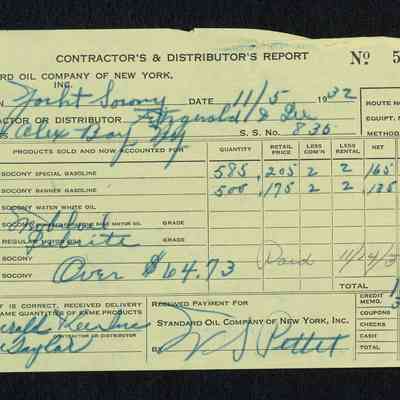 CONTRACTOR'S & DISTRIBUTOR'S REPORT Nº 5
RD OIL COMPANY OF NEW YORK, INC.
N Yacht Socony DATE 11/5 1932 ROUTE NO
ACTOR OR DISTRIBUTOR Fitzgerald & Lee EQUIPT.
Alex Bay NY S. S. No. 835 METHOD
PRODUCTS SOLD AND NOW ACCOUNTED FOR QUANTITY RETAIL PRICE LESS COM'N LESS RENTAL NET
SOCONY SPECIAL GASOLINE 585 .205 2 2 165
SOCONY BANNER GASOLINE 500 .175 2 2 135
SOCONY WATER WHITE OIL
MOTOR OIL GRADE
REGULAR MOTOR OIL GRADE
SOCONY
SOCONY Over $64.73 Paid 11/14/3
SOCONY TOTAL
IS CORRECT, RECEIVED DELIVERY
AME QUANTITIES OF SAME PRODUCTS
CONTRACTOR OR DISTRIBUTOR
Taylor
RECEIVED PAYMENT FOR
STANDARD OIL COMPANY OF NEW YORK, INC.
BY
CREDIT MEMO
COUPONS
CHECKS
CASH
TOTAL